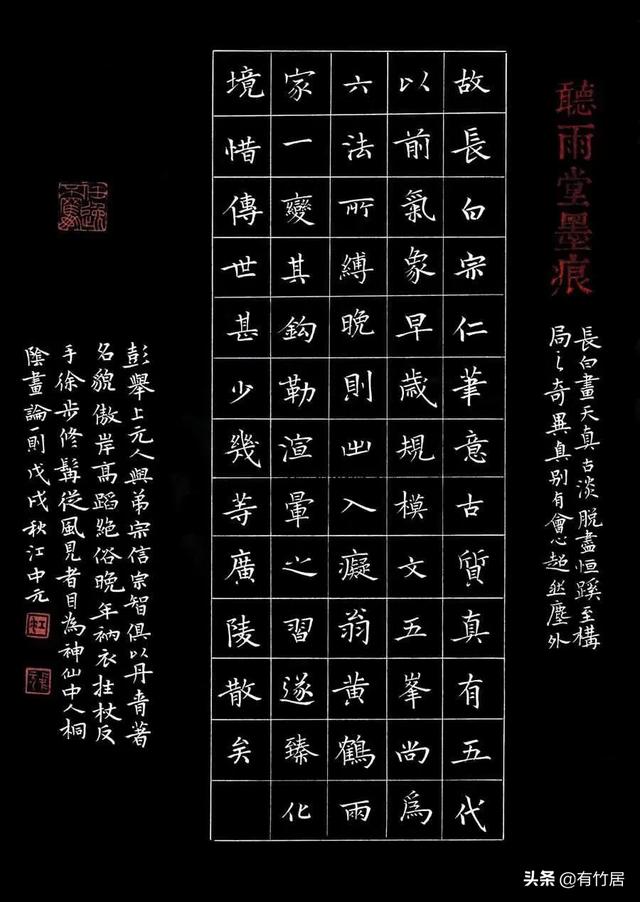 聽雨堂墨痕
長白畫天真古淡脱盡恒蹊至構
局之奇異真别有會心超然塵外
故長白宗仁筆意古質真有五代
以前氣象早歲規模文五峯尚爲
六法所縛晚則出入癡翁黄鶴雨
家一變其鈎勒渲暈之習遂臻化
境惜傳世甚少幾等廣陵散矣
彭舉上元人與弟宗信宗智俱以丹青著
名貌傲岸高蹈絶俗晚年衲衣拄杖反
手徐步修髯從風見者目為神仙中人桐
陰畫論一則戊戌秋江中元
头条 @有竹居